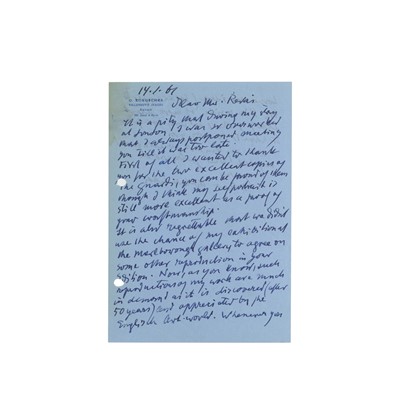 14.1.61
O. KOKOSCHKA
VILLENEUVE (VAUD)
Dear Mr.
It is a pity that during my stay
at London I was so
that I always postponed meeting
you till it was too late.
First of all I wanted to thank
you for the two excellent copies of
the Guardi; you can be proud of them
though I think my selfportrait is
still more excellent as a proof of
your workmanship.
It is also regrettable that we didn't
use the chance of my exhibition at
the marlborough gallery to agree on
some other reproduction in your
edition. Now, as you know, such
reproductions of my work are much
in demand as it is discovered (after
50 years) and appreciated by the
English Art-world. Whenever you